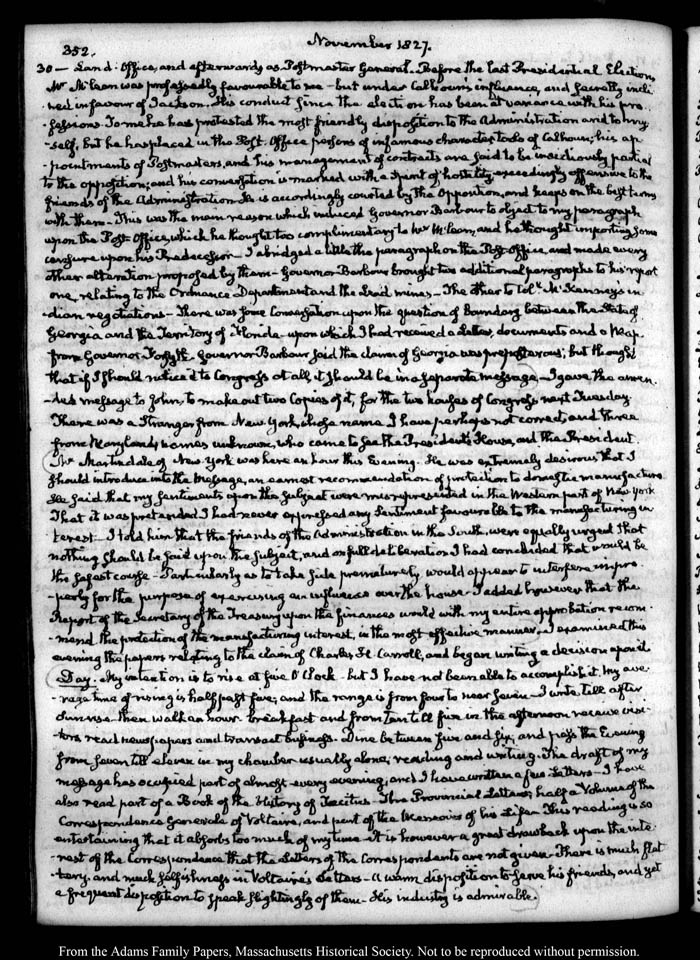 352.
November 1827.
30 — Land: Office, and afterwards as Postmaster General. Before the last Presidential Election,
Mr McLean was professedly favourable to me — but under Calhoun's influence, and secretly incli-
-ned in favour of Jackson. His conduct since the election has been at variance with his pro-
-fessions. To me he has protested the most friendly disposition to the Administration and to my-
-self, but he has placed in the Post-Office persons of infamous character, tools of Calhoun; his ap-
-pointments of Postmasters, and his management of contracts are said to be insidiously partial
to the opposition; and his conversation is marked with a spirit of hostility, exceedingly offensive to the
friends of the Administration. He is accordingly courted by the Opposition, and keeps on the best terms
with them — This was the main reason which induced Governor Barbour to object to my paragraph
upon the Post-Office, which he thought too complimentary to Mr McLean, and he thought importing some
censure upon his Predecessor — I abridged a little the paragraph on the Post-Office and made every
other alteration proposed by them — Governor Barbour brought two additional paragraphs to his report
one, relating to the Ordnance Department and the Lead mines — The other to Coll. McKenney's in-
-dian negotiations — There was some Conversation upon the question of Boundary between the State of
Georgia and the Territory of Florida upon which I had received a Letter, documents and a Map
from Governor Forsyth. Governor Barbour said the claim of Georgia was preposterous; but thought
that if I should notice it to Congress at all, it should be in a separate message. — I gave the amen-
-ded message to John, to make out two Copies of it, for the two houses of Congress, next Tuesday.
There was a Stranger from New York, whose name I have perhaps not correct, and three
from Maryland, names unknown, who came to see the President's House, and the President.
Mr Martindale of New York was here an hour this Evening. He was extremely desirous that I
should introduce into the Message, an earnest recommendation of protection to domestic manufactures
He said that my sentiments upon the subject were misrepresented in the Western part of New York
That it was pretended I had never expressed any Sentiment favourable to the manufacturing in-
-terest — I told him that the friends of the Administration in the South, were equally urgent that
nothing should be said upon the subject, and on full deliberation I had concluded that would be
the safest course — Particularly as to take side prematurely, would appear to interfere impro-
-perly for the purpose of exercising an influence over the house. I added however that the
Report of the Secretary of the Treasury upon the finances would with my entire approbation recom-
-mend the protection of the manufacturing interest, in the most effective manner. I examined this
evening the papers relating to the claim of Charles H. Carroll, and began writing a decision upon it.
Day. My intention is to rise at five O'Clock — but I have not been able to accomplish it. My ave-
-rage time of rising is half past five; and the range is from four to near seven — I write till after
Sunrise, then walk an hour — breakfast and from ten till five in the afternoon receive visi-
-tors read newspapers and transact business. Dine between five and six; and pass the Evening
from seven till eleven in my chamber usually alone; reading and writing. The draft of my
message has occupied part of almost every evening; and I have written a few Letters — I have
also read part of a Book of the History of Tacitus — The Provincial Letters, half a Volume of the
Correspondence Generale of Voltaire, and part of the Memoirs of his Life. This reading is so
entertaining that it absorbs too much of my time. It is however a great drawback upon the inte-
-rest of the Correspondence that the Letters of the Correspondents are not given. There is much flat-
-tery, and much selfishness in Voltaire's Letters — A warm disposition to serve his friends, and yet
a frequent disposition to speak slightingly of them — His industry is admirable.
From the Adams Family Papers, Massachusetts Historical Society. Not to be reproduced without permission.